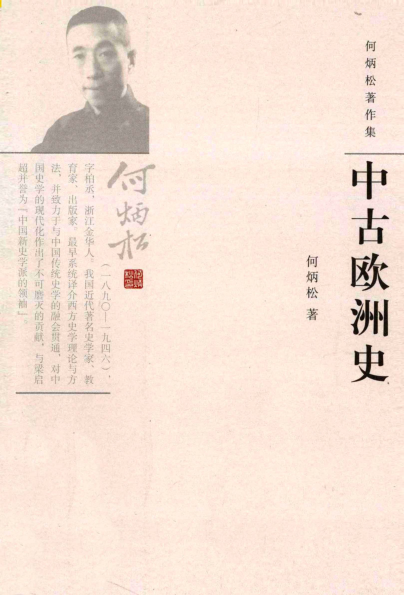 何炳松著作集
中古欧洲史
何炳松 著
何炳松
（一八九〇—一九四六），
字柏丞，浙江金华人。我国近代著名史学家、教
育家、出版家。最早系统译介西方史学理论与方
法，并致力于与中国传统史学的融会贯通，对中
国史学的现代化作出了不可磨灭的贡献，与梁启
超并誉为“中国新史学派的领袖”。